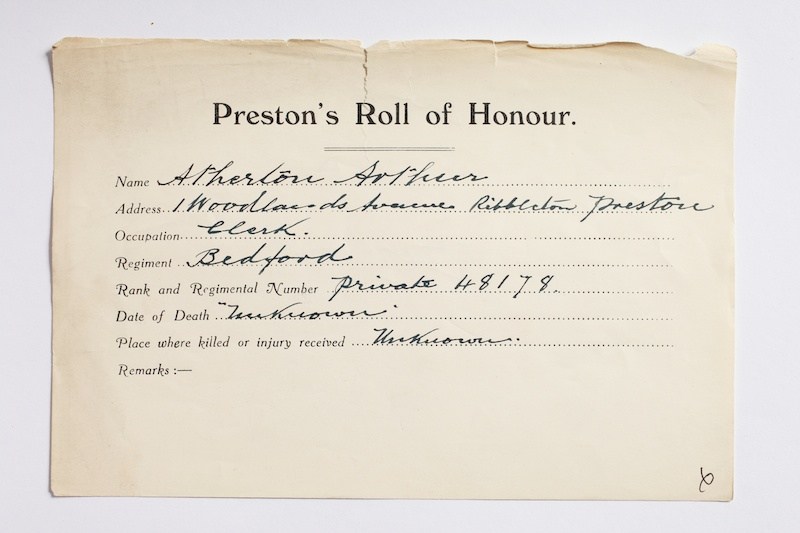 Preston's Roll of Honour.
Name Atherton Arthur
Address 1 Woodlands Avenue Ribbleton Preston
Occupation Clerk.
Regiment Bedford
Rank and Regimental Number private 48178.
Date of Death "Unknown"
Place where killed or injury received Unknown.
Remarks :—